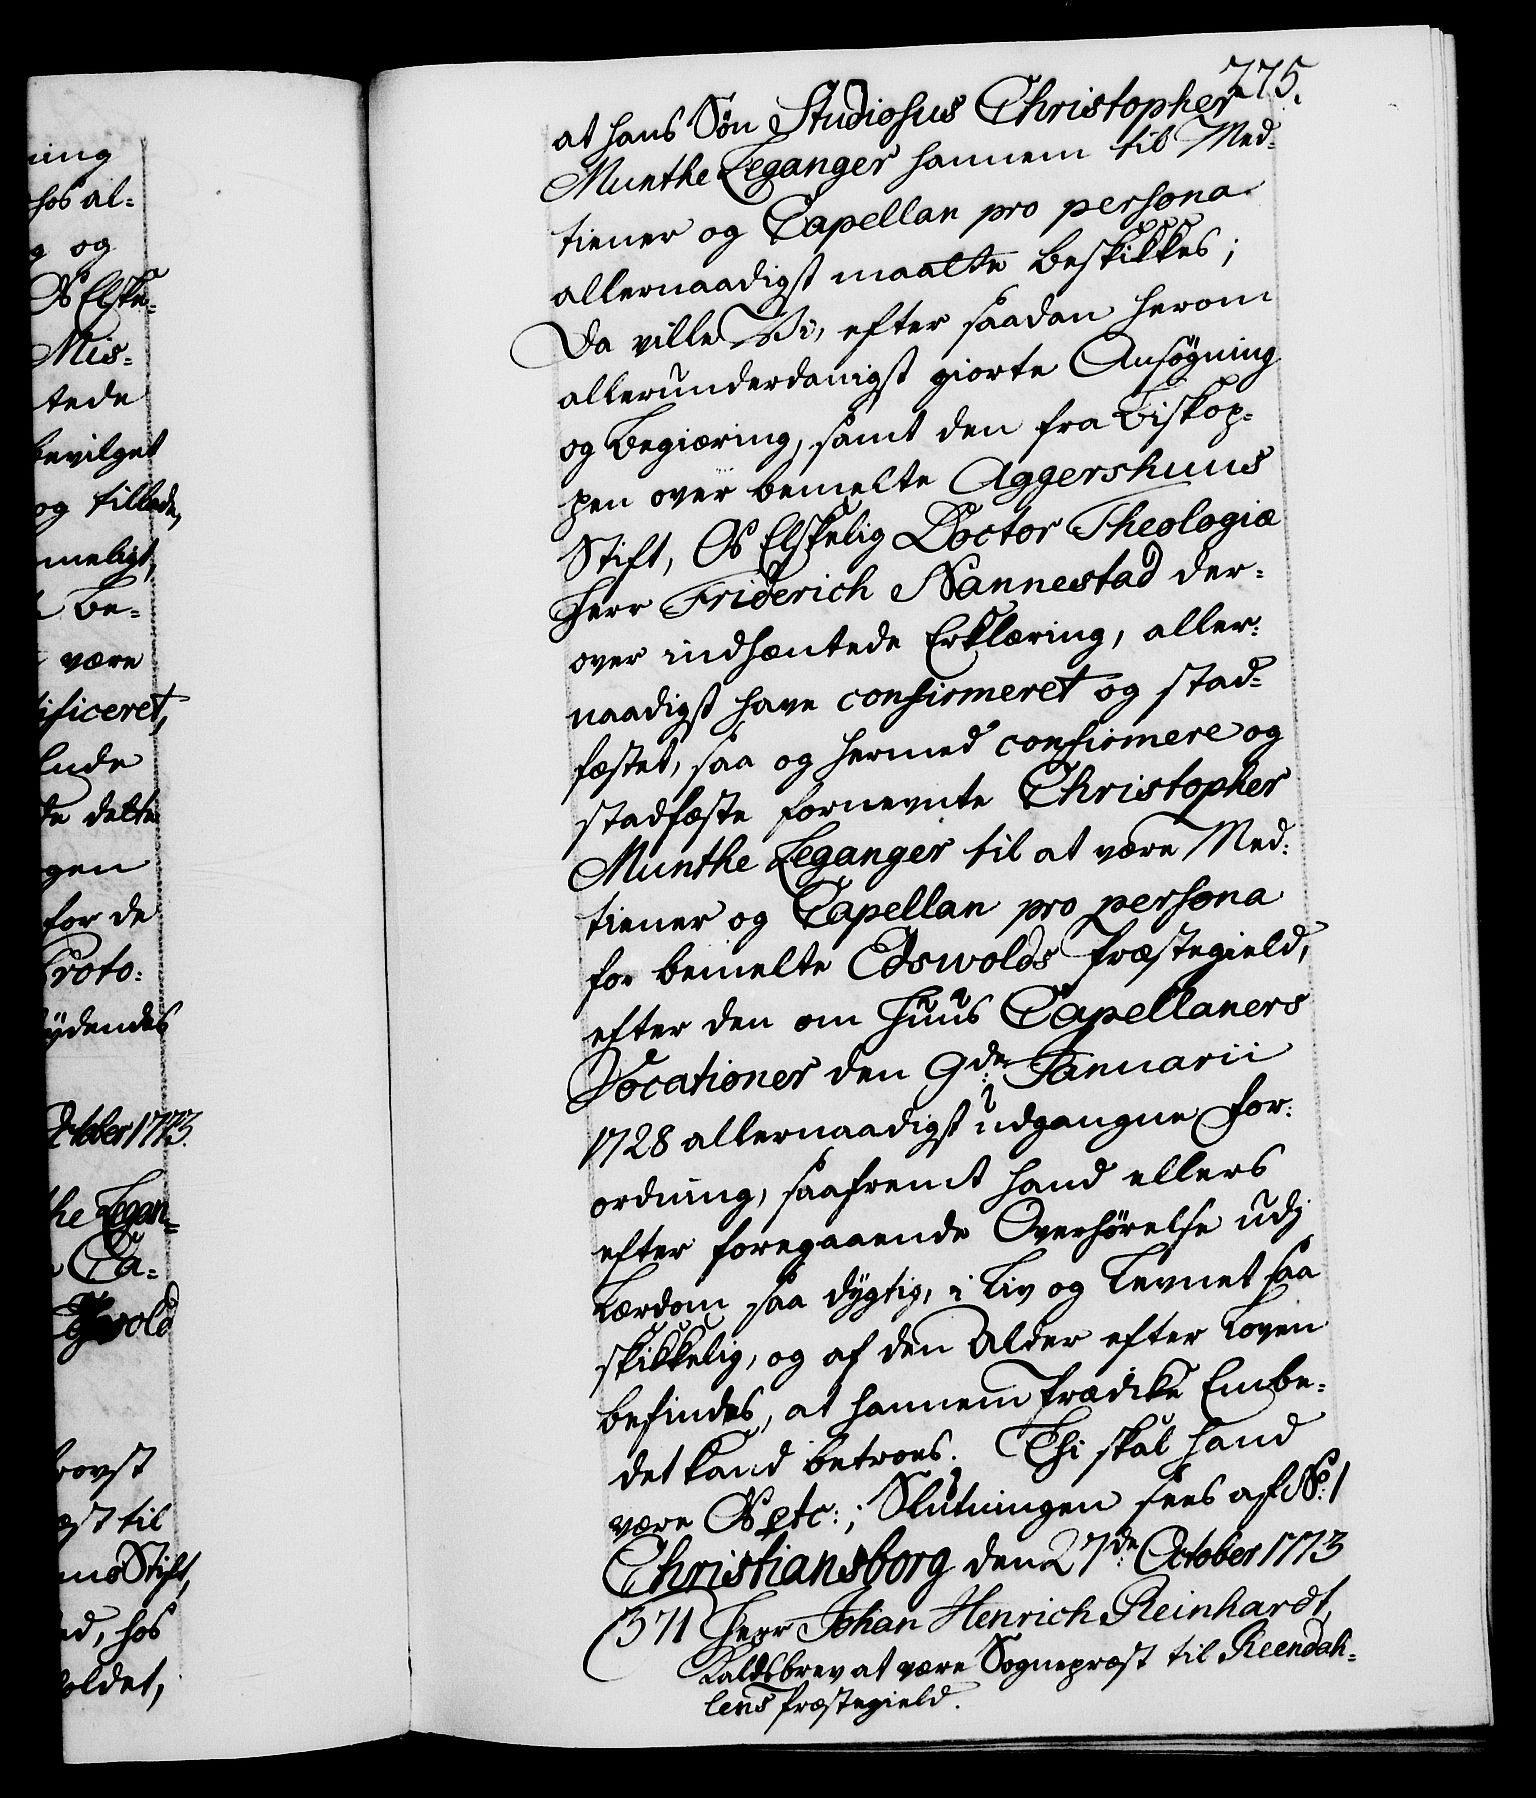 ning
hos al-
og
Os Elske-
Mis-
tede
bevilget
og tillade,
meligt,
Be-
være
ificeret,
lende
de dette
gen
for de
Proto-
lydendes
October 1773.
the Legan-
Ca-
Edswold
Provst
æst til
uus Stift,
ed, hos
holdet,
275.
at hans Søn Studiosus Christopher
Munthe Leganger hannem til Med-
tiener og Capellan pro persona
allernaadigst maatte beskikkes;
Da ville Vi, efter saadan herom
allerunderdanigst giorte Ansøgning
og Begiæring, samt den fra Biskop-
pen over bemelte Aggershuus
Stift, Os Elskelig Doctor Theologiæ
Herr Friderich Nannestad der-
over indhæntede Erklæring, aller-
naadigst have confirmeret og stad-
fæstet, saa og hermed confirmere og
stadfæste fornevnte Christopher
Munthe Leganger til at være Med-
tiener og Capellan pro persona
for bemelte Edswolds Præstegield,
efter den om Huus Capellaners
Vocationer den 9de Januarii
1728 allernaadigst udgangne For-
ordning, saafremt hand ellers
efter foregaaende Overhørelse udj
Lærdom saa dygtig, i Liv og Levnet saa
skikkelig, og af den Alder efter Loven
befindes, at hannem Prædike Embe-
det kand betroes. Thi skal hand
være Os etc:; Slutningen sees af No. 1
Christiansborg den 27de October 1773
371 Herr Johan Henrich Reinhardt,
Kaldsbrev at være Sognepræst til Reendah-
lens Præstegield.